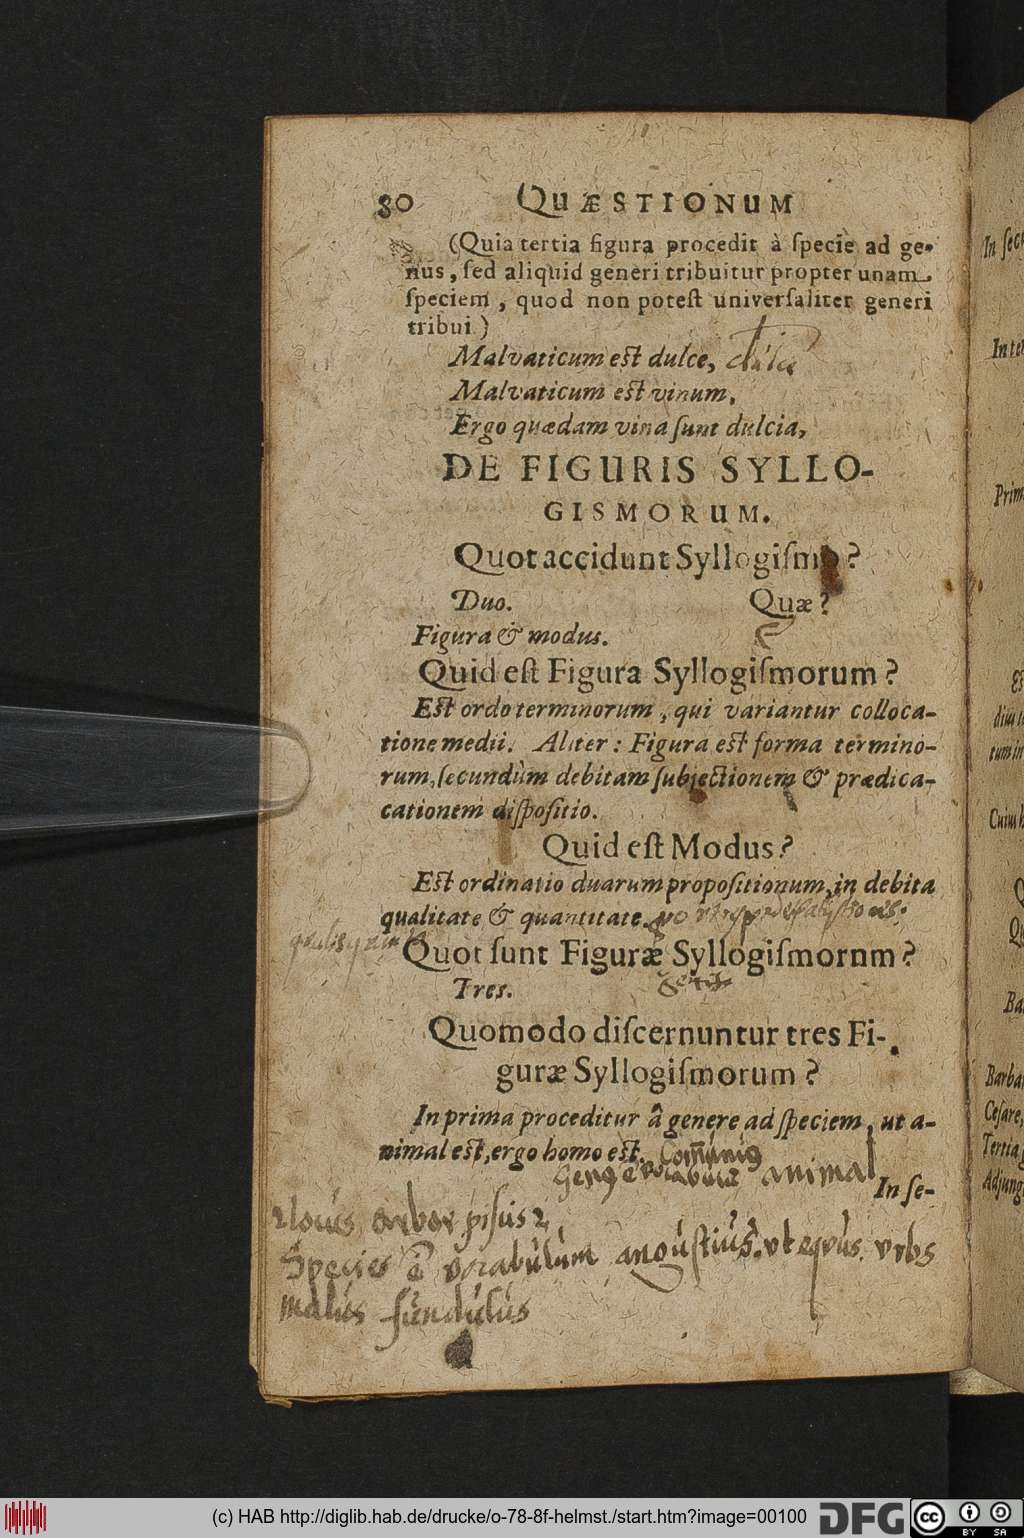 80 QUÆSTIONUM
(Quia tertia figura procedit à ſpecie ad ge-
nus, ſed aliquid generi tribuitur propter unam
ſpeciem, quod non poteſt univerſaliter generi
tribui)
Malvaticum eſt dulce,
Malvaticum eſt vinum,
Ergo quædam vina ſunt dulcia,
DE FIGURIS SYLLO-
GISMORUM.
Quot accidunt Syllogiſmo?
Duo. Quæ?
Figura & modus.
Quid eſt Figura Syllogiſmorum?
Eſt ordo terminorum, qui variantur colloca-
tione medii. Aliter: Figura eſt forma termino-
rum, ſecundùm debitam ſubjectionem & prædica-
cationem diſpoſitio.
Quid eſt Modus?
Eſt ordinatio duarum propoſitionum, in debita
qualitate & quantitate.
Quot ſunt Figuræ Syllogiſmornm?
Tres.
Quomodo diſcernuntur tres Fi-
guræ Syllogiſmorum?
In prima proceditur â genere ad ſpeciem, ut a-
nimal eſt, ergo homo eſt. Com̄unius
Genus ē vocabulū animal
In ſe-
arbor piſcis
Species ē vocabulum anguſtius. vt equus. vrbs
malus fundulus
In ſec
In ter
Prim
Cuiu
Ba
Barba
Ceſare,
Tertia
Adjung
(c) HAB http://diglib.hab.de/drucke/o-78-8f-helmst./start.htm?image=00100 DFG cc BY SA